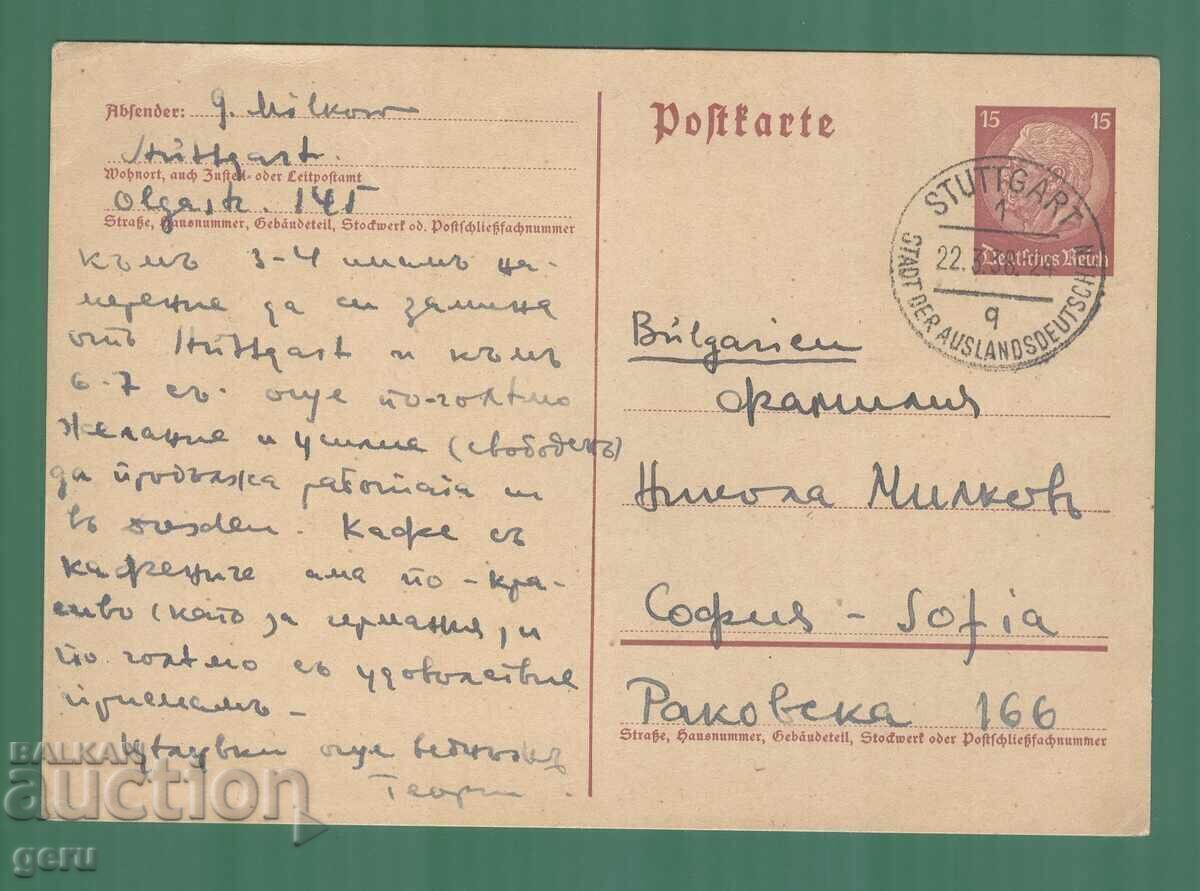 Absender: G. Milkow
Stuttgart.
Wohnort, auch Zustell- oder Leitpostamt
Olgastr. 145
Straße, Hausnummer, Gebäudeteil, Stockwerk od. Postschließfachnummer
къмъ 3-4 имамъ на-
мерение да си замина
отъ Stuttgart и къмъ
6-7 съ още по-голѣмо
желание и усилие (свободенъ)
да продължа работата си
въ Dresden. Кафе съ
кафениче ама по-кра-
сиво (като за германия, и
по голѣмо съ удоволствие
приемамъ-
Цѣлувки още веднъжъ
Георги
Postkarte
15 15
Deutsches Reich
STUTTGART
1
22.3.38.21
q
STADT DER AUSLANDSDEUTSCHEN
Bulgarien
Фамилия
Никола Милковъ
София - Sofia
Раковска 166
Straße, Hausnummer, Gebäudeteil, Stockwerk oder Postschließfachnummer
BALKAN
auction
geru